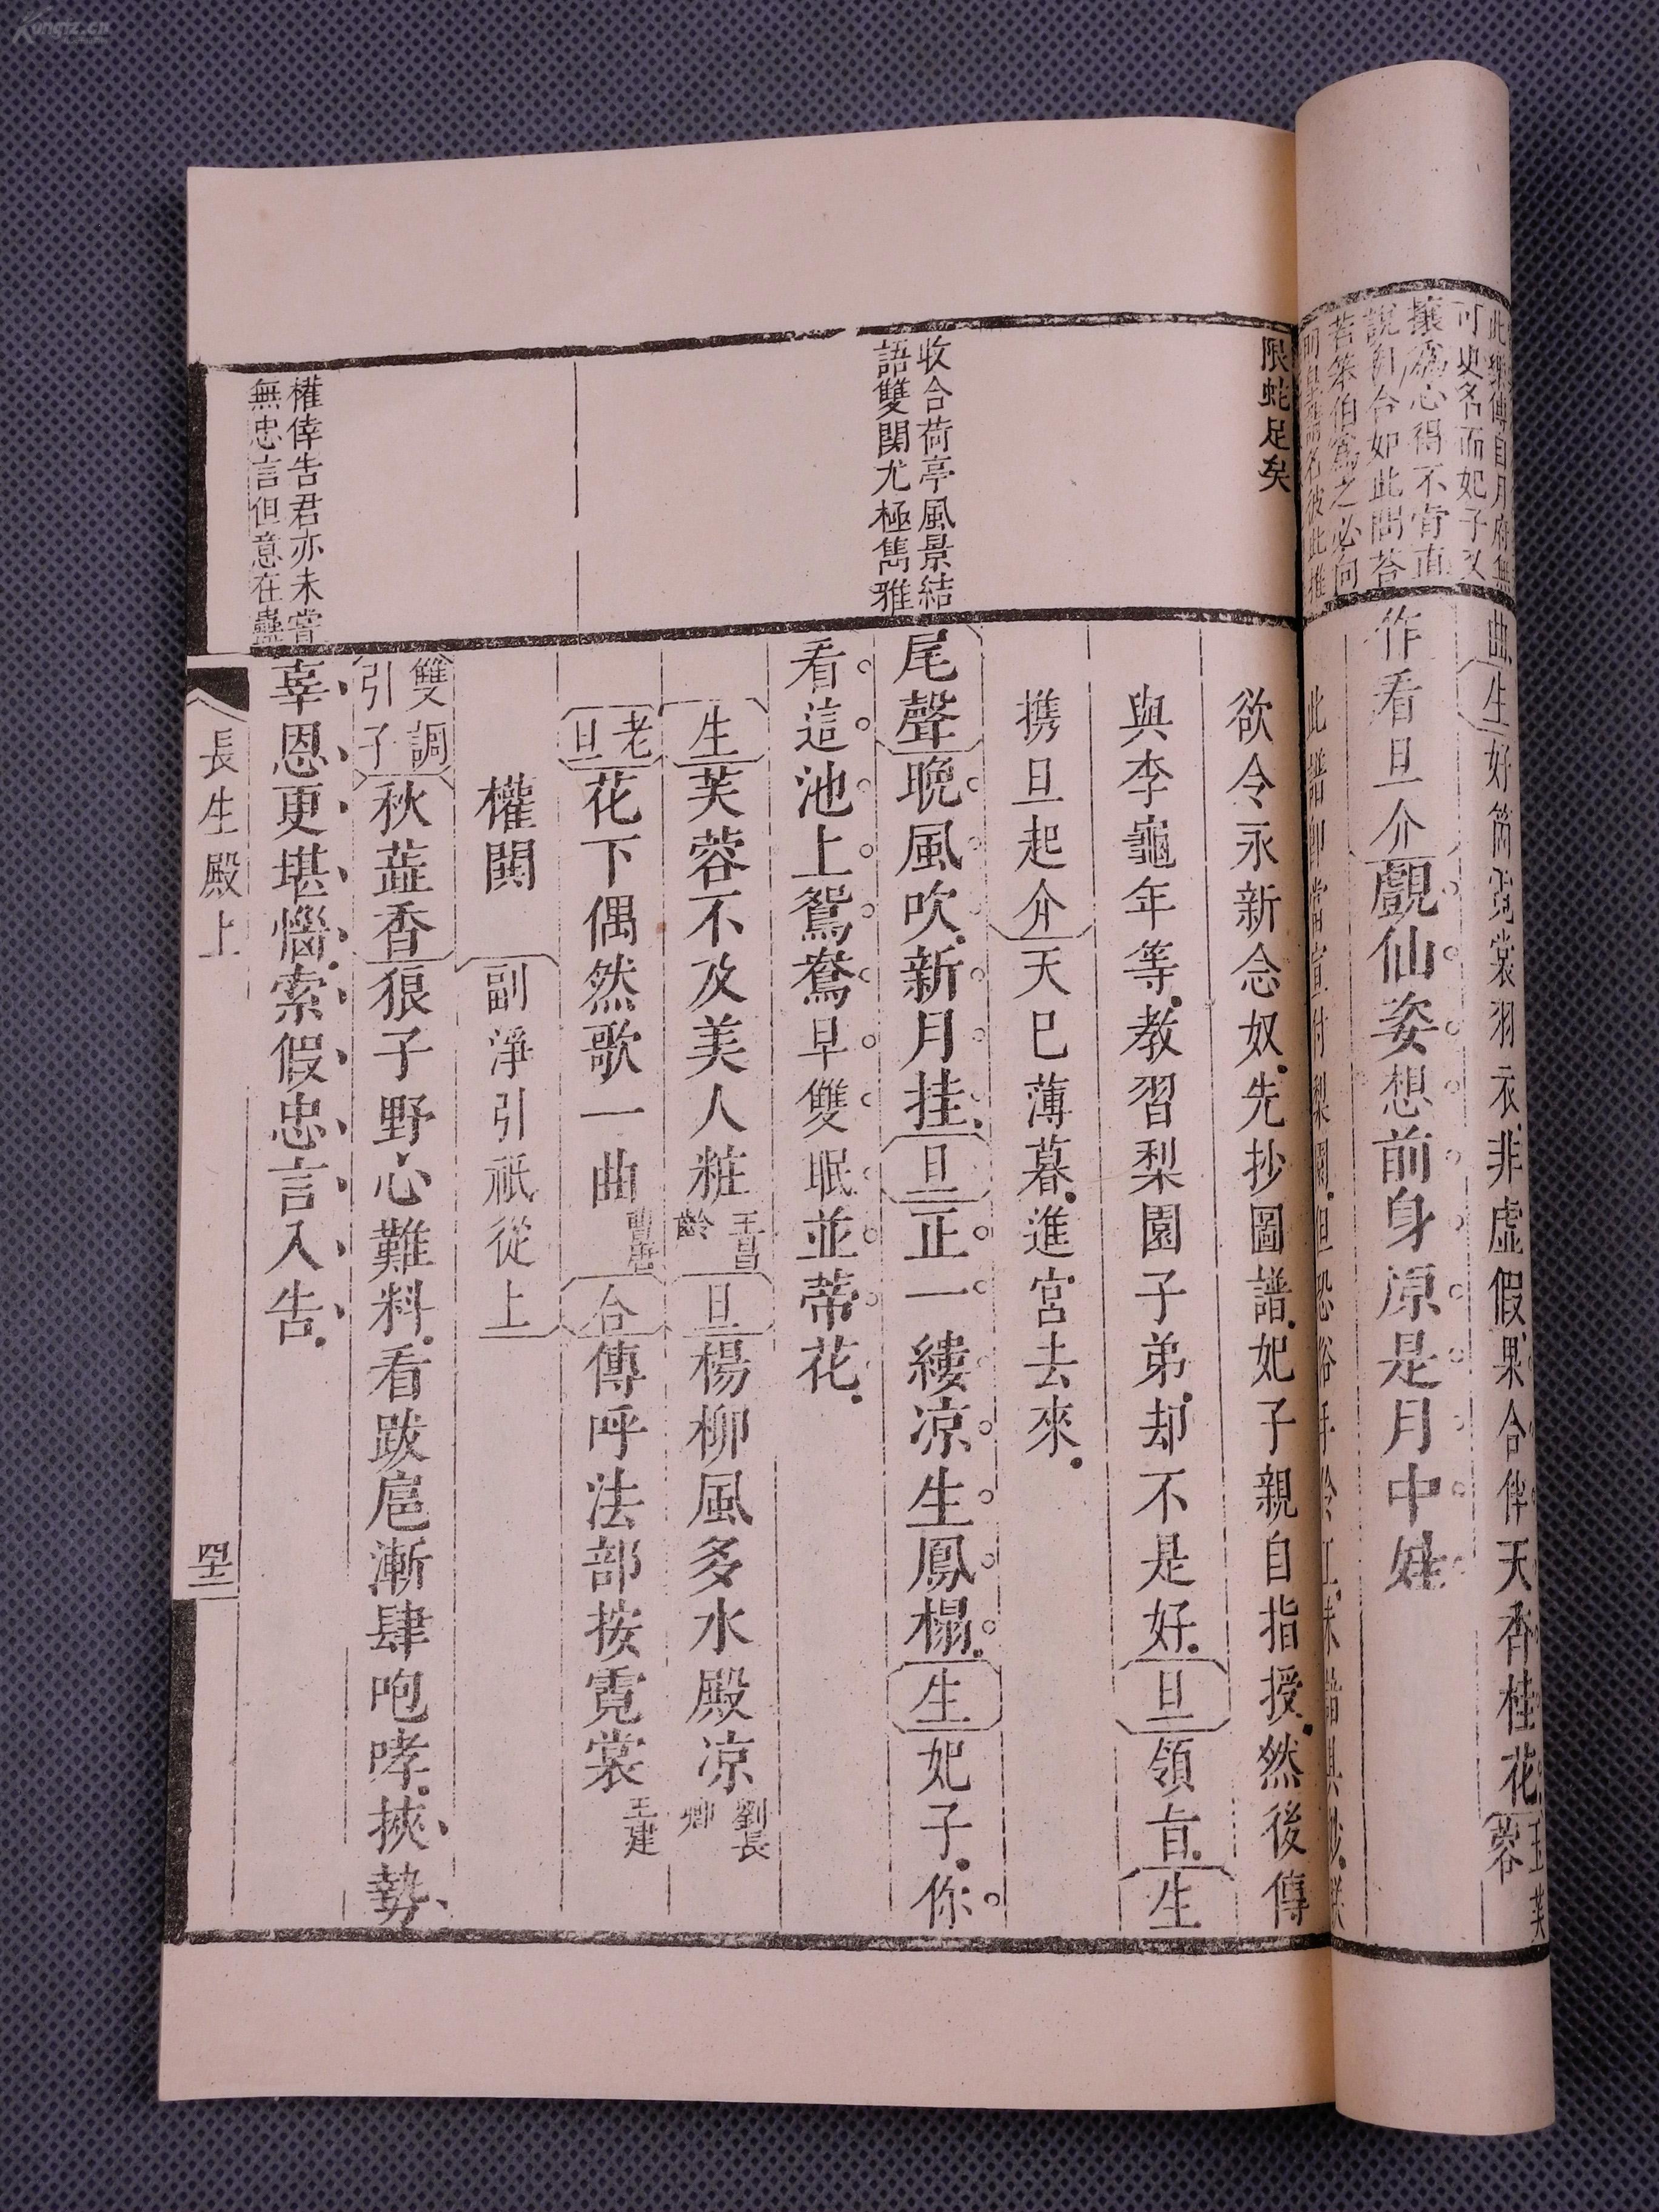 曲生好箇霓裳羽衣非虚假果合伴天香桂花玉芙蓉
作看旦介覷仙姿想前身原是月中娃
此譜即當宣付梨園但恐俗手伶工未諳其妙朕
欲令永新念奴先抄圖譜妃子親自指授然後傳
與李龜年等教習梨園子弟却不是好旦領旨生
携旦起介天已薄暮進宮去來
尾聲晚風吹新月挂旦正一縷凉生鳳榻生妃子你
看這池上鴛鴦早雙眠並蒂花
生芙蓉不及美人粧王昌齡旦楊柳風多水殿凉劉長卿
老旦花下偶然歌一曲曹唐合傳呼法部按霓裳王建
權鬨副淨引祇從上
雙調引子秋蕋香狠子野心難料看跋扈漸肆咆哮挾勢
辜恩更堪惱索假忠言入告
此樂傳自月府無
可史名而妃子又
攘爲心得不肯直
說則合如此問荅
若笨伯爲之必向
限蛇足矣
收合荷亭風景結
語雙関尤極雋雅
權倖告君亦未嘗
無忠言但意在蠱
長生殿上
四十二
Kongfz.cn